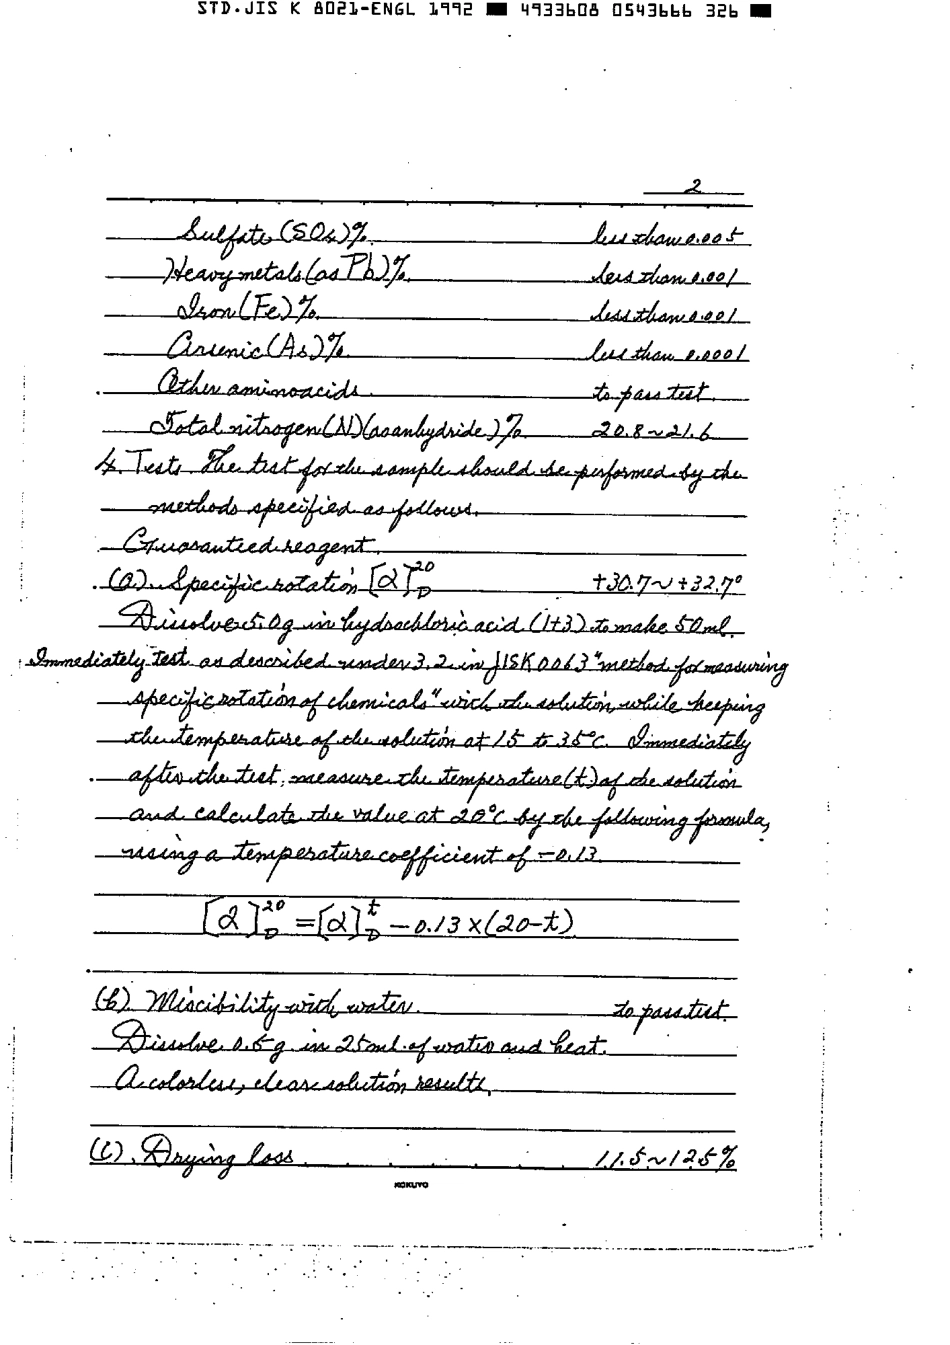 STD.JIS K 8021-ENGL 1992 ■ 4933608 0543666 326 ■
2
Sulfate (SO4) % less than 0.005
Heavy metals (as Pb) % less than 0.001
Iron (Fe) % less than 0.001
Arsenic (As) % less than 0.0001
Other aminoacids to pass test
Total nitrogen (N) (as anhydride) % 20.8~21.6
4. Tests The test for the sample should be performed by the
methods specified as follows.
Guaranteed reagent
(a). Specific rotation [α]20D +30.7~+32.7°
Dissolve 5.0g in hydrochloric acid (1+3) to make 50 ml.
Immediately test as described under 3.2. in JIS K 0063 "method for measuring
specific rotation of chemicals" with the solution, while keeping
the temperature of the solution at 15 to 35°C. Immediately
after the test, measure the temperature (t) of the solution
and calculate the value at 20°C by the following formula,
using a temperature coefficient of -0.13
[α]20D = [α]tD - 0.13 × (20-t)
(b). Miscibility with water to pass test.
Dissolve 0.5g in 25ml of water and heat.
A colorless, clear solution results.
(c). Drying loss 11.5~12.5%
KOKUYO